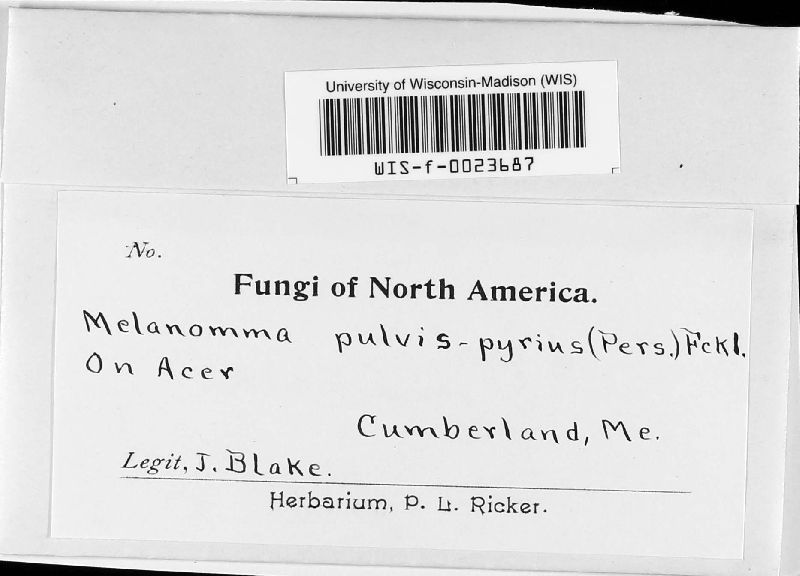 University of Wisconsin-Madison (WIS)
WIS-f-0023687
No.
Fungi of North America.
Melanomma pulvis-pyrius (Pers.) Fckl.
On Acer
Cumberland, Me.
Legit, J. Blake.
Herbarium, P. L. Ricker.